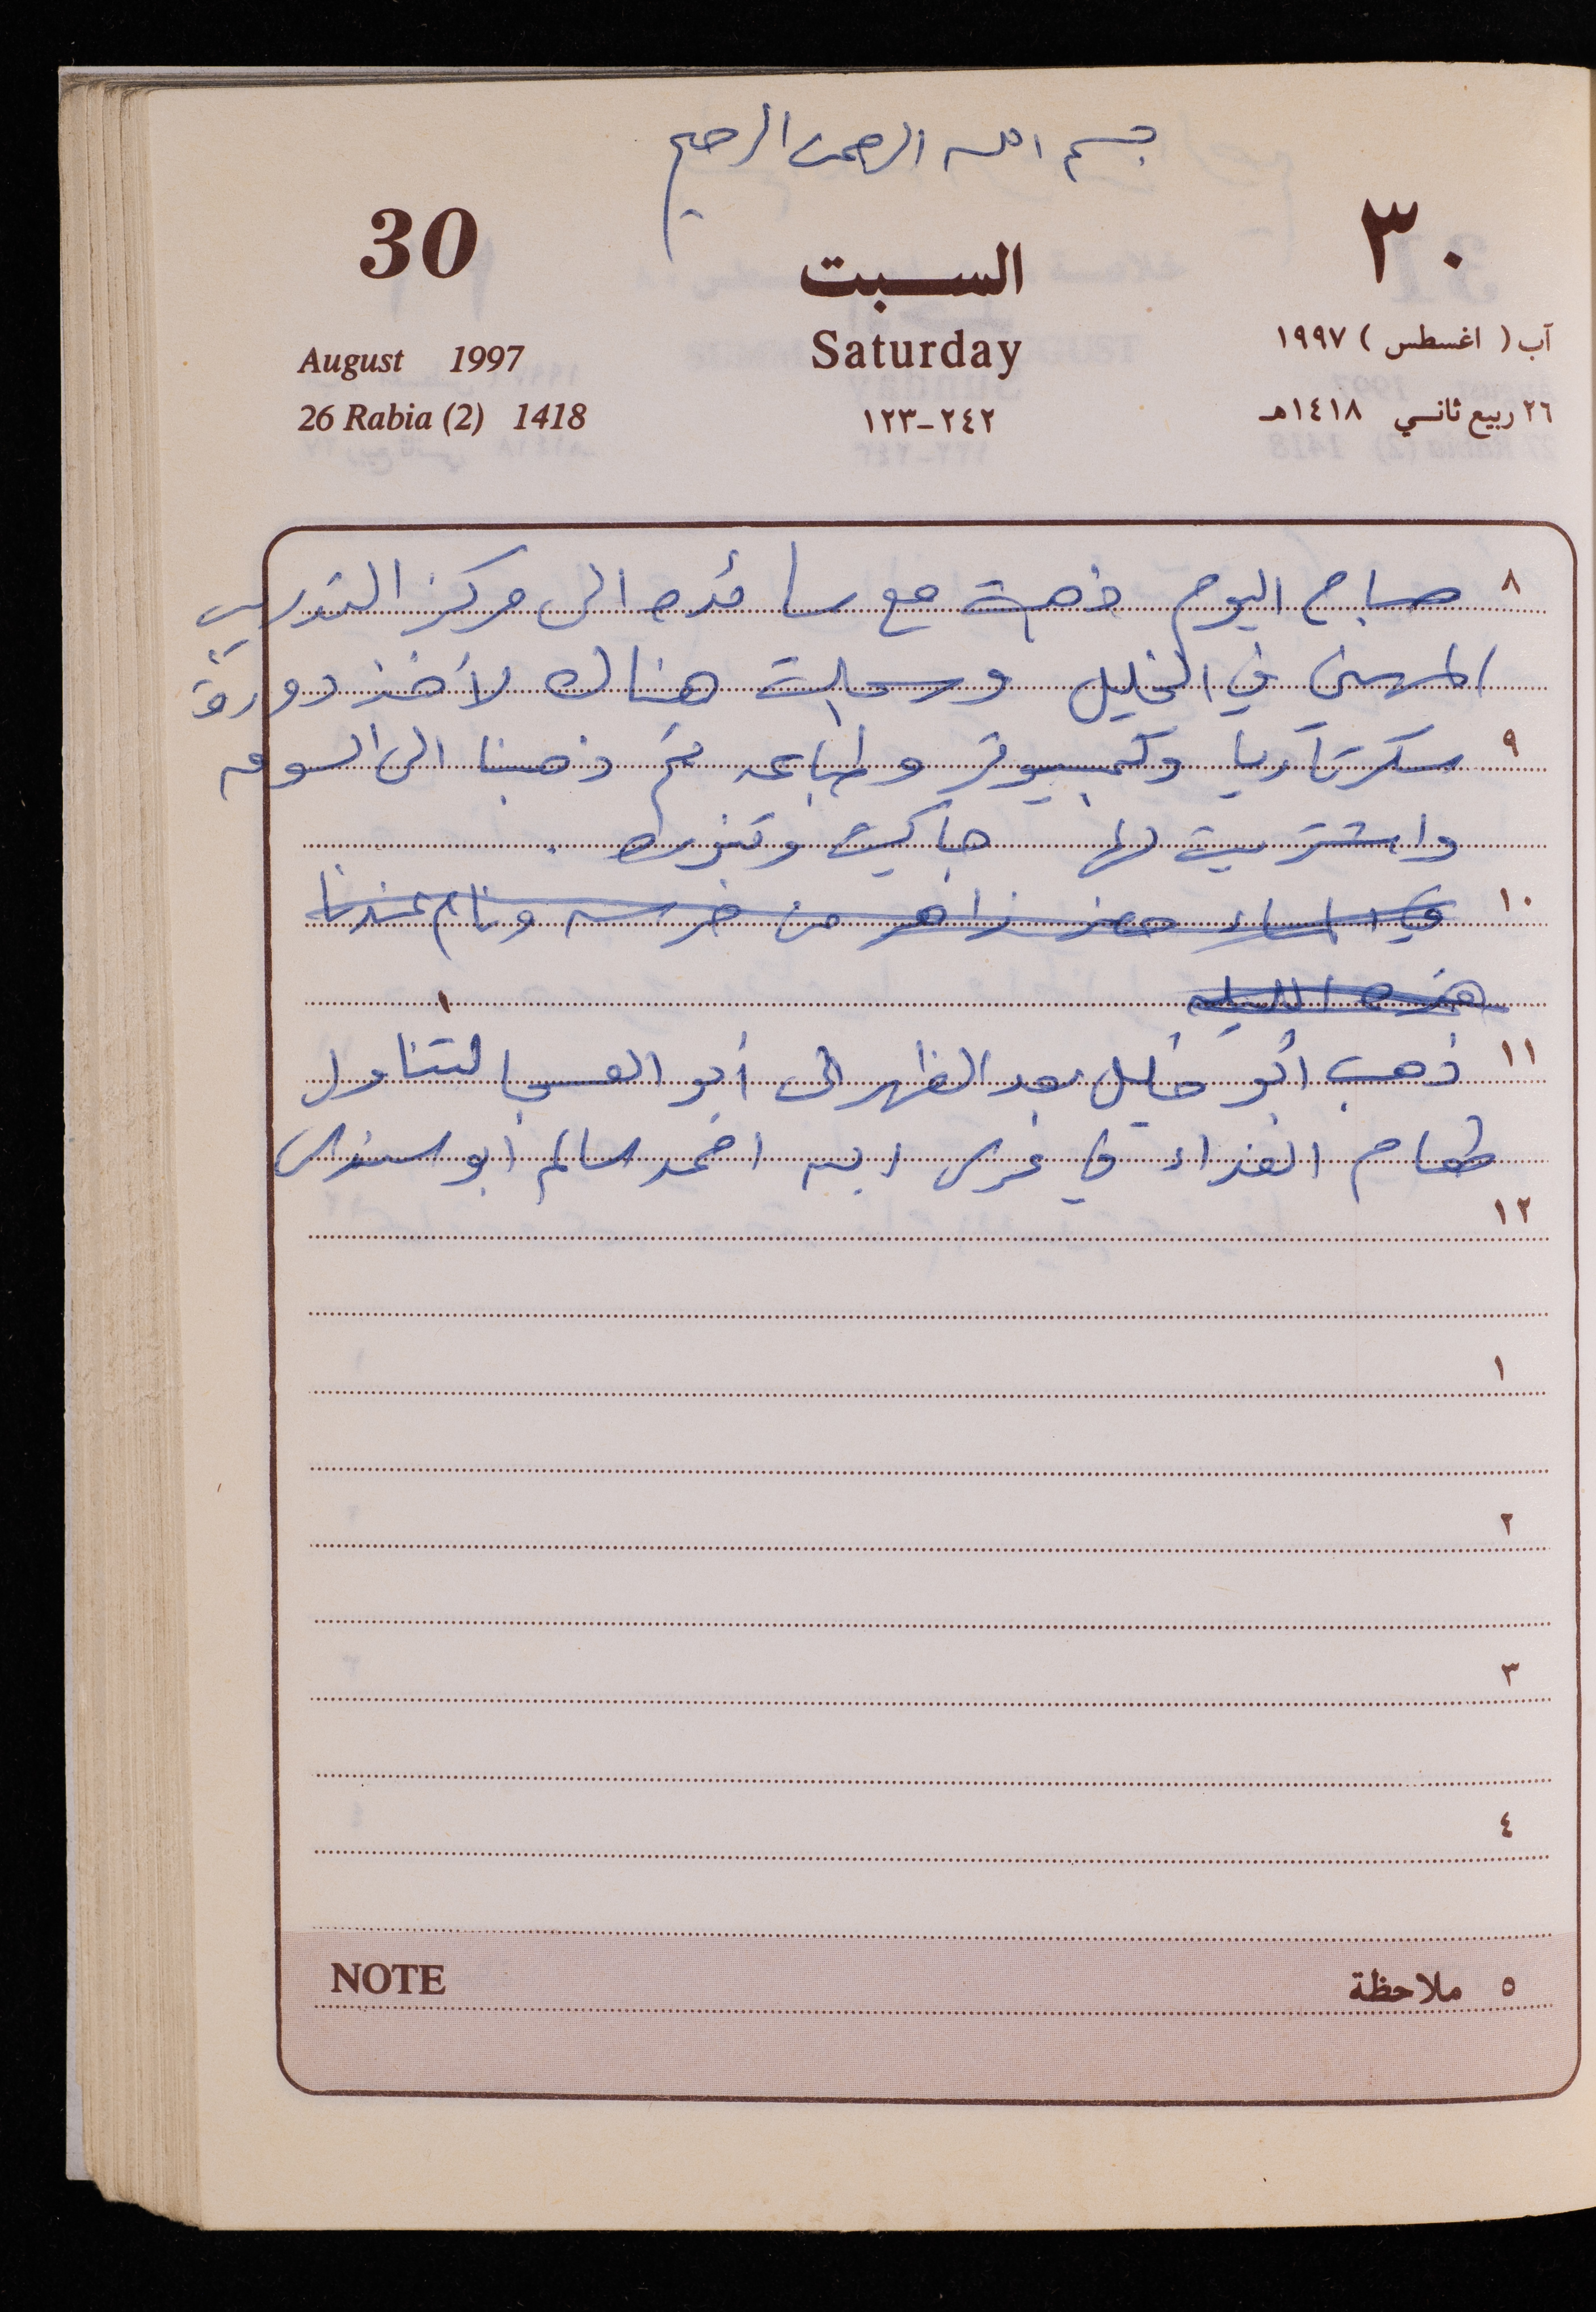 بسم الله الرحمن الرحيم
30 السبت ٣٠
August 1997 Saturday آب ( اغسطس ) ١٩٩٧
26 Rabia (2) 1418 ٢٤٢-١٢٣ ٢٦ ربيع ثانسي ١٤١٨هـ
٨ صباح اليوم ذهبت مع سائده الى مركز التدريب
المهني في الخليل وسجلت هناك لأخذ دورة
٩ سكرتاريا وكمبيوتر وطباعه ثم ذهبنا الى السوق
واشتريت لها جاكيت وتنوره .
١٠ في المساء حضر زاهر من خرسه ونام عندنا
هذه الليله
١١ ذهب أبو خليل بعد الظهر الى أبو العسجا لتناول
طعام الغداء في عرس ابن احمد سالم ابو سندس
١٢
١
٢
٣
٤
NOTE ٥ ملاحظة